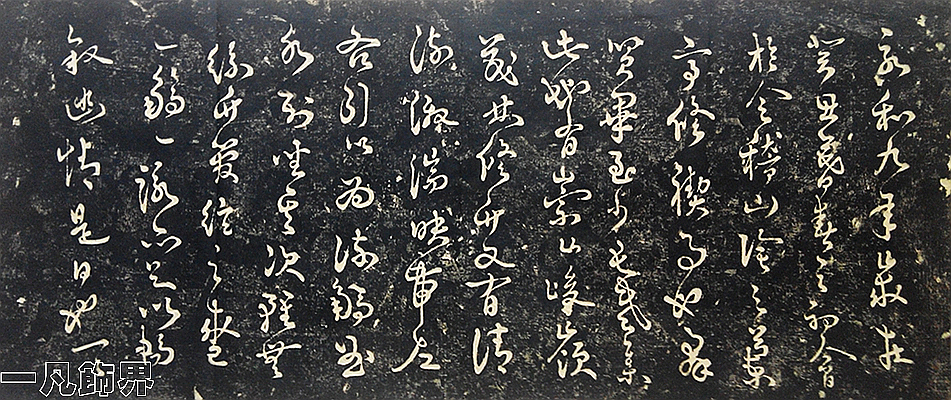 永和九年歲在
癸丑暮春之初會
於會稽山陰之蘭
亭修禊事也群
賢畢至少長咸集
此地有崇山峻嶺
茂林修竹又有清
流激湍映帶左
右引以為流觴曲
水列坐其次雖無
絲竹管絃之盛
一觴一詠亦足以暢
敘幽情是日也
一凡飾界